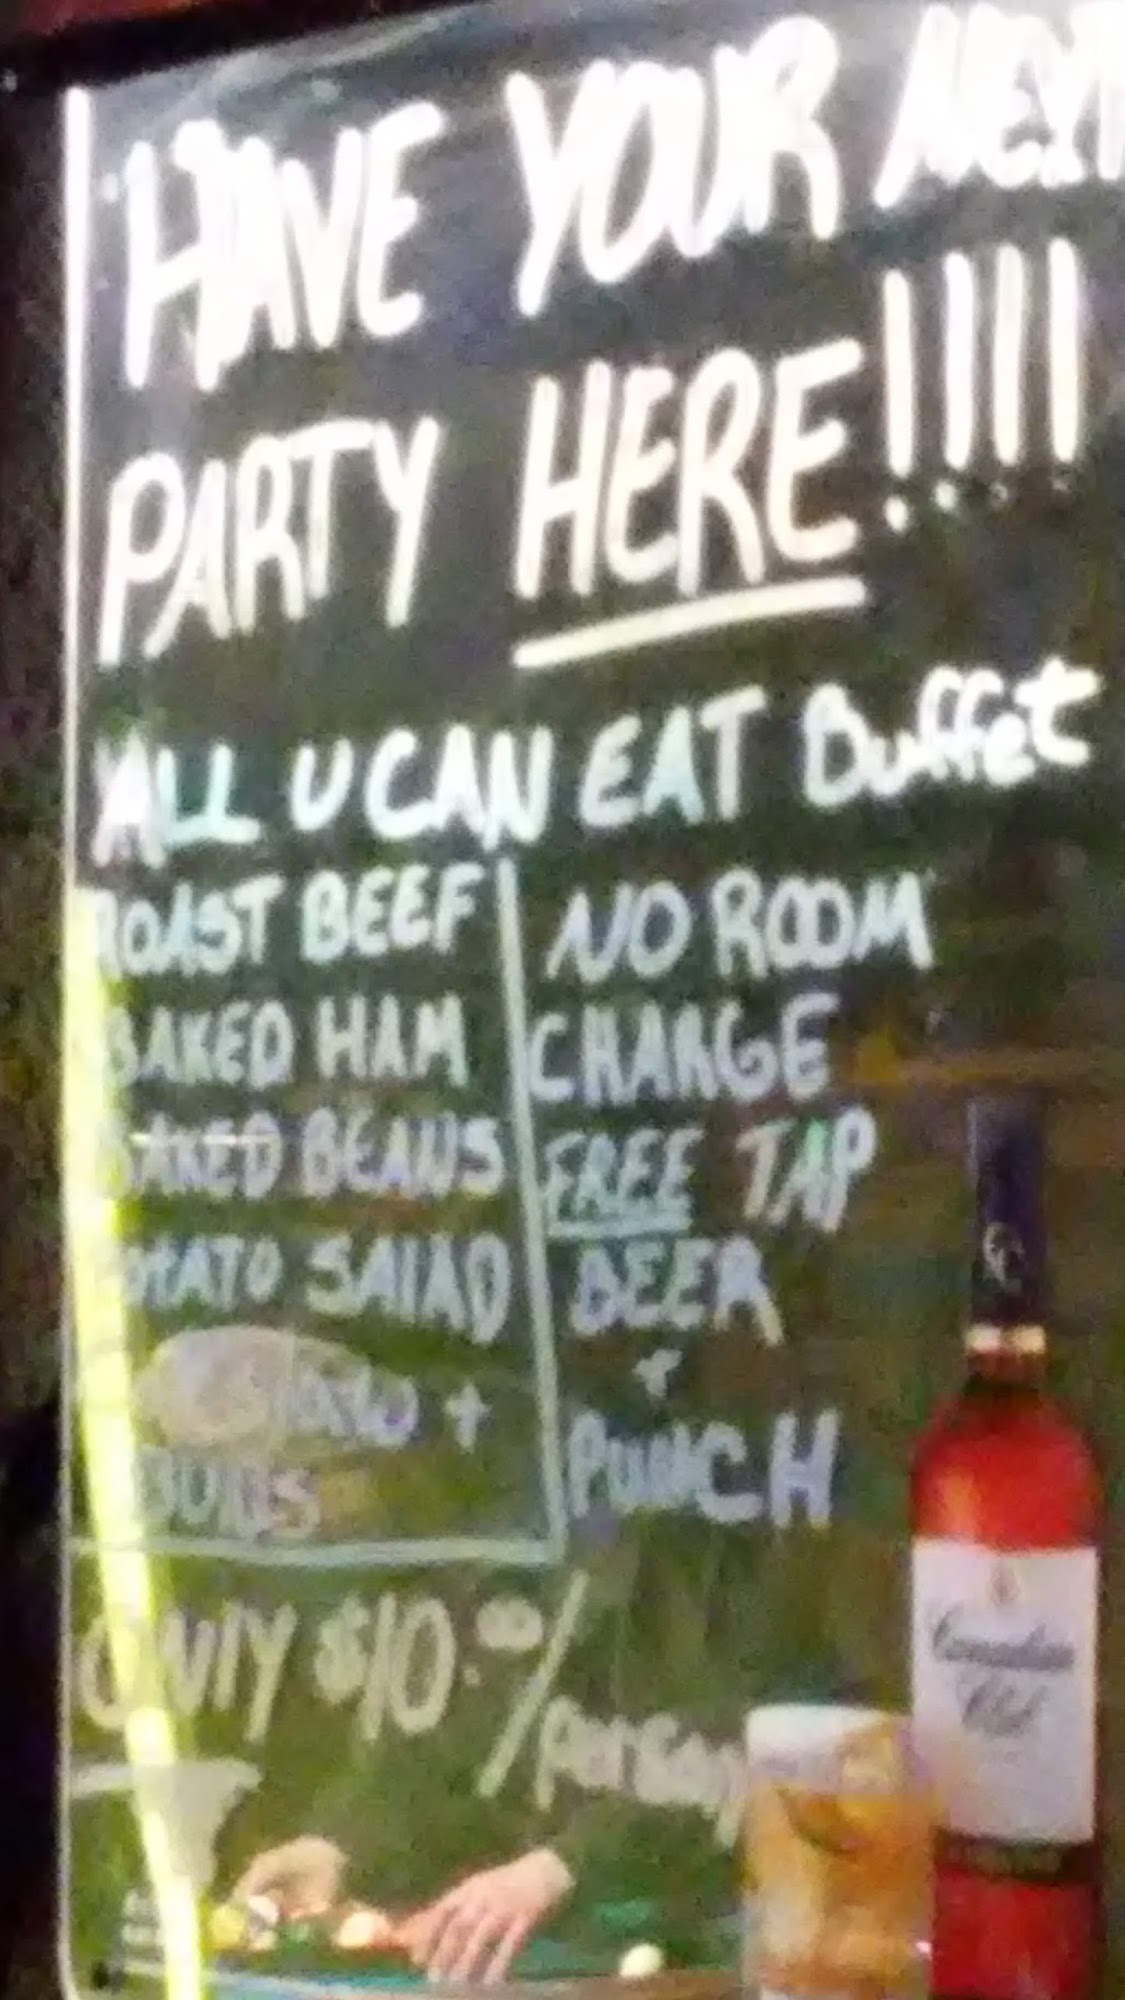 HAVE YOUR NEXT
PARTY HERE!!!!
ALL U CAN EAT Buffet
ROAST BEEF
BAKED HAM
BAKED BEANS
POTATO SALAD
+
BUNS
NO ROOM
CHARGE
FREE TAP
BEER
+
PUNCH
ONLY $10.00/
person
Canadian
Club